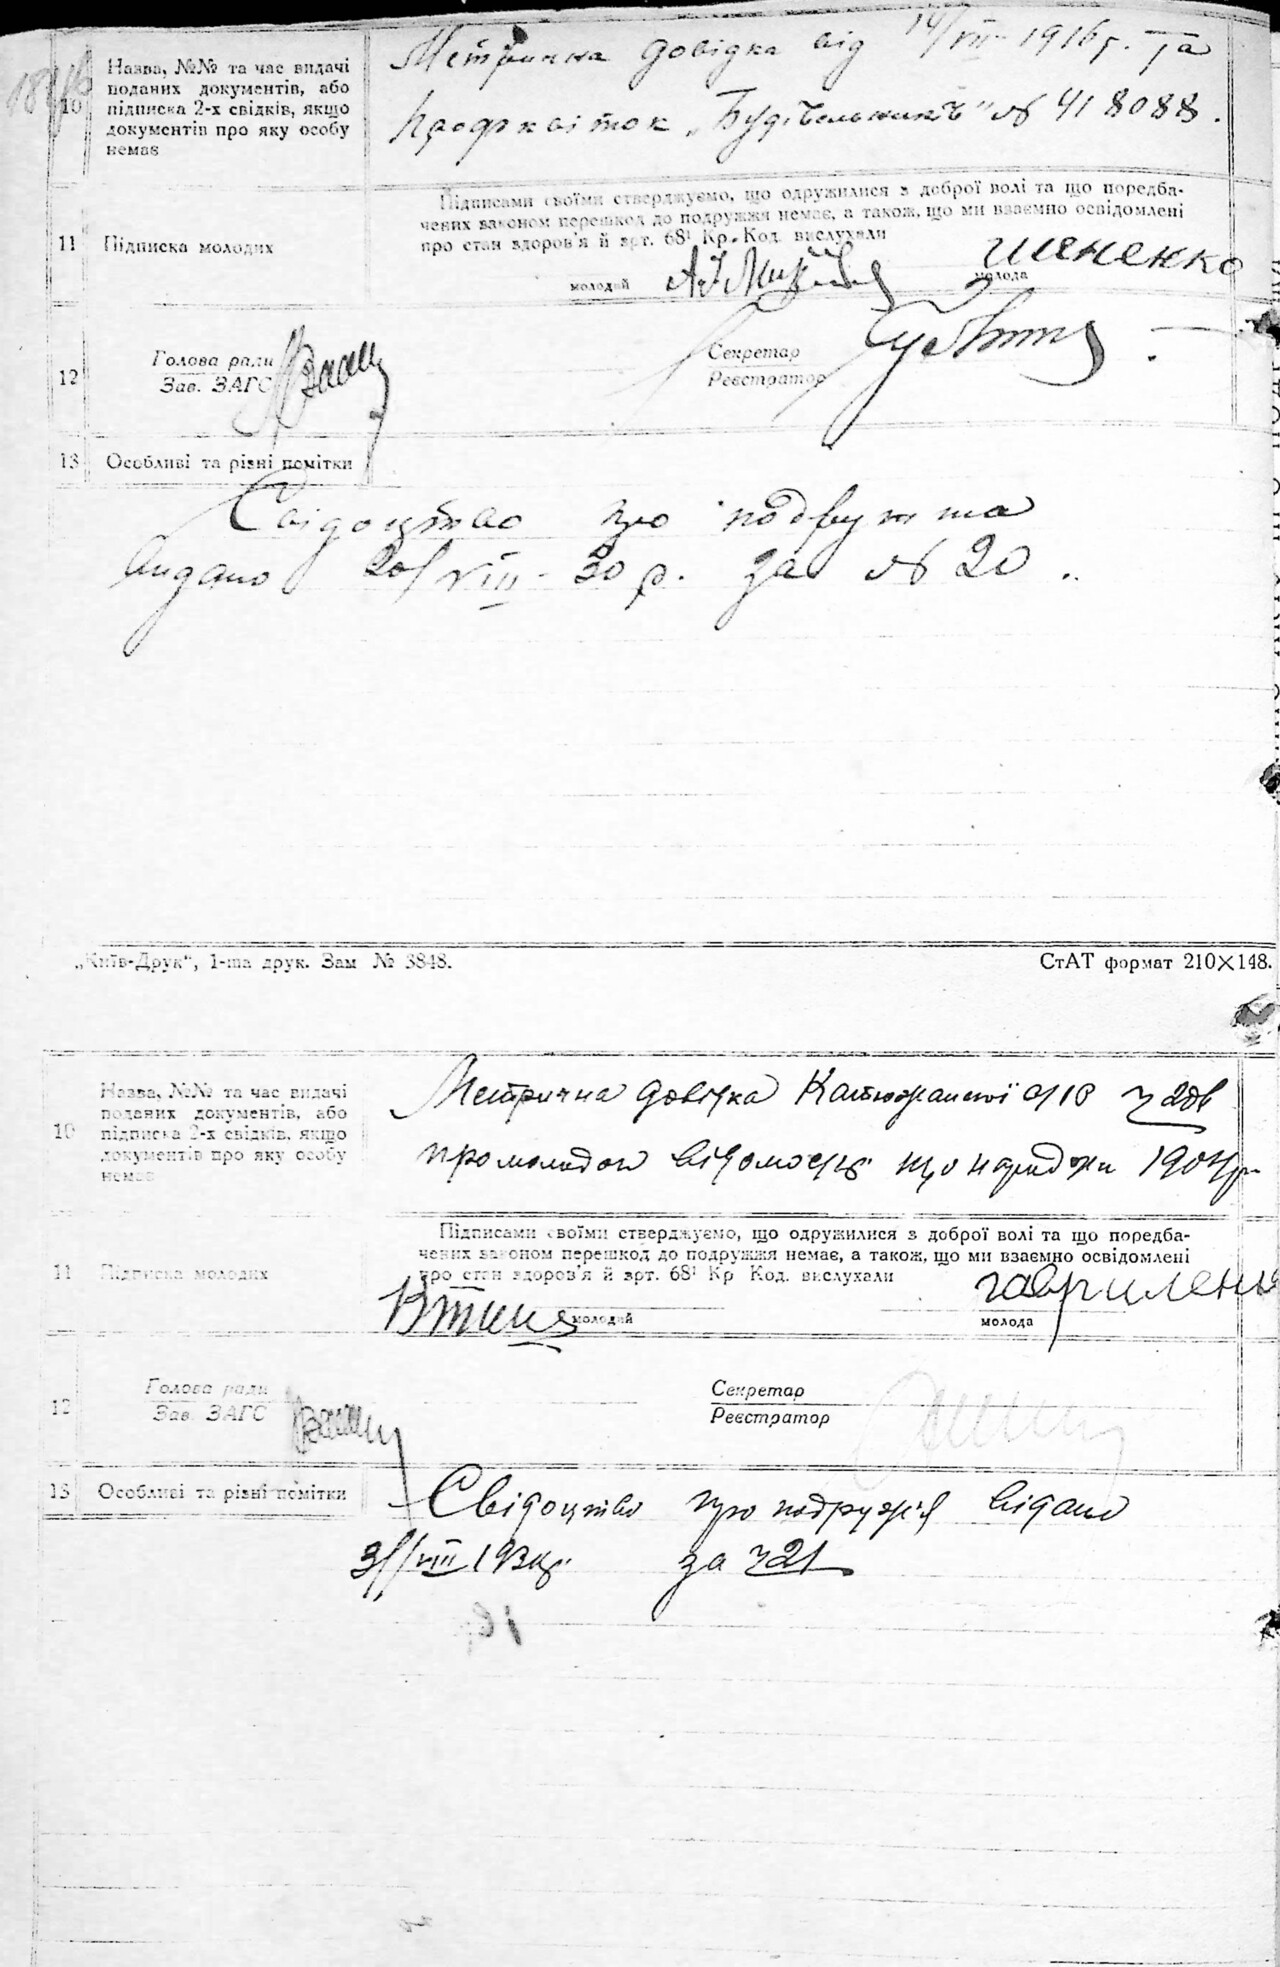 Метрична довідка від 14/VII - 1916 р. та
10 Назва, №№ та час видачі
поданих документів, або
підписка 2-х свідків, якщо
документів про яку особу
немає
Профквіток „Будівельників" № 418088.
Підписами своїми стверджуємо, що одружилися з доброї волі та що передба-
чених законом перешкод до подружжя немає, а також, що ми взаємно освідомлені
про стан здоров'я й арт. 68¹ Кр. Код. вислухали
11 Підписка молодих
молодий молода
12 Голова ради
Зав. ЗАГС
Секретар
Реєстратор
13 Особливі та різні помітки
Свідоцтво про подружжа
видано 20/VIII - 30 р. за № 20.
„Київ-Друк", 1-ша друк. Зам № 3848. СтАТ формат 210×148.
10 Назва, №№ та час видачі
поданих документів, або
підписка 2-х свідків, якщо
документів про яку особу
немає
Метрична довідка Катюжанської с/р
про молодого що народжен
Підписами своїми стверджуємо, що одружилися з доброї волі та що передба-
чених законом перешкод до подружжя немає, а також, що ми взаємно освідомлені
про стан здоров'я й арт. 68¹ Кр Код. вислухали
11 Підписка молодих
молодий молода
12 Голова ради
Зав. ЗАГС
Секретар
Реєстратор
13 Особливі та різні помітки
Свідоцтво про подружжя видано
за 21